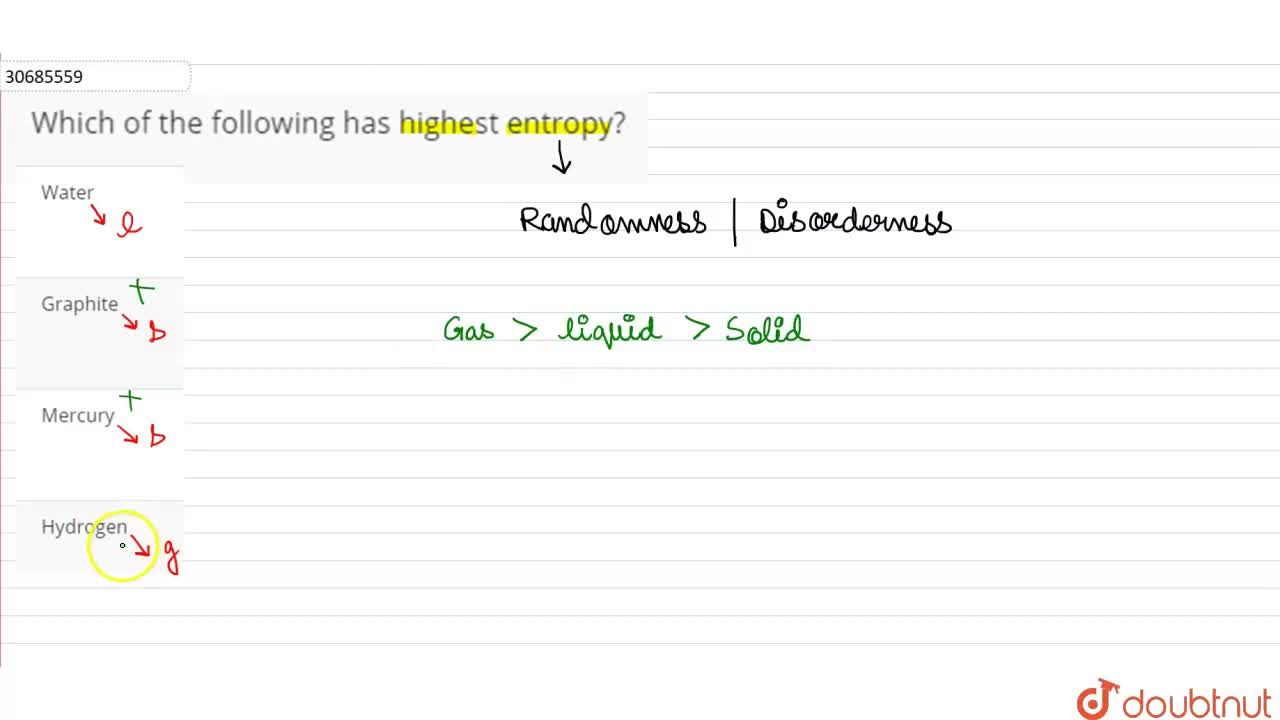 30685559
Which of the following has highest entropy?
Water
l
Randomness | Disorderness
Graphite
s
Gas > liquid > Solid
Mercury
s
Hydrogen
g
doubtnut